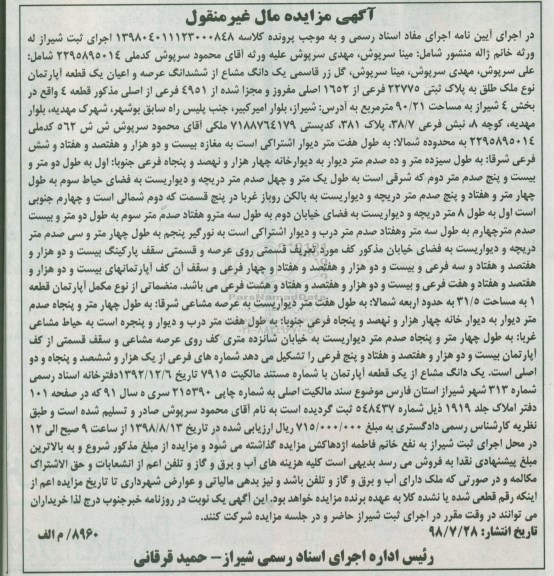 آگهی مزایده مال غیرمنقول
در اجرای آیین نامه اجرای مفاد اسناد رسمی و به موجب پرونده کلاسه ۱۳۹۸۰۴۰۱۱۱۲۳۰۰۰۸۴۸ اجرای ثبت شیراز له
ورثه خانم ژاله منشور شامل: مینا سرپوش، مهدی سرپوش علیه ورثه آقای محمود سرپوش کدملی ۲۲۹۵۸۹۵۰۱۴ شامل:
علی سرپوش، مهدی سرپوش، مینا سرپوش، گل زر قاسمی یک دانگ مشاع از ششدانگ عرصه و اعیان یک قطعه آپارتمان
نوع ملک طلق به پلاک ثبتی ۲۲۷۷۵ فرعی از ۱۶۵۲ اصلی مفروز و مجزا شده از ۴۹۵۱ فرعی از اصلی مذکور قطعه ۴ واقع در
بخش ۴ شیراز به مساحت ۹۰/۲۱ مترمربع به آدرس: شیراز، بلوار امیرکبیر، جنب پلیس راه سابق بوشهر، شهرک مهدیه، بلوار
مهدیه، کوچه ۸، نبش فرعی ۳۸/۷، پلاک ۳۸۱، کدپستی ۷۱۸۸۷۶۴۱۷۹ ملکی آقای محمود سرپوش ش ش ۵۶۲ کدملی
۲۲۹۵۸۹۵۰۱۴ به محدوده شمالا: به طول هفت متر دیوار اشتراکی است به مغازه بیست و دو هزار و هفتصد و هفتاد و شش
فرعی شرقا: به طول سیزده متر و ده صدم متر دیوار به دیوارخانه چهار هزار و نهصد و پنجاه فرعی جنوبا: اول به طول دو متر و
بیست و پنج صدم متر دوم که شرقی است به طول یک متر و چهل صدم متر دریچه و دیواریست به فضای حیاط سوم به طول
چهار متر و هفتاد و پنج صدم متر دریچه و دیواریست به بالکن روباز غربا در پنج قسمت که دوم شمالی است و چهارم جنوبی
است اول به طول ۸ متر دریچه و دیواریست به فضای خیابان دوم به طول سه مترو هفتاد صدم متر سوم به طول دو متر و بیست
صدم مترچهارم به طول سه متر وهفتاد صدم متر درب و دیوار اشتراکی است به نورگیر پنجم به طول چهار متر و سی صدم متر
دریچه و دیواریست به فضای خیابان مذکور کف مورد تعریف قسمتی روی عرصه و قسمتی سقف پارکینگ بیست و دو هزار و
هفتصد و هفتاد و سه فرعی و بیست و دو هزار و هفتصد و هفتاد و چهار فرعی و سقف آن کف آپارتمانهای بیست و دو هزار و
هفتصد و هفتاد و هفت فرعی و بیست و دو هزار و هفتصد و هفتاد و هشت فرعی می باشد. منضماتی از نوع مکمل آپارتمان قطعه
۱ به مساحت ۳۱/۵ به حدود اربعه شمالا: به طول هفت متر دیواریست به عرصه مشاعی شرقا: به طول چهار متر و پنجاه صدم
متر دیوار به دیوار خانه چهار هزار و نهصد و پنجاه فرعی جنوبا: به طول هفت متر درب و دیوار و پنجره است به حیاط مشاعی
غربا: به طول چهار متر و پنجاه صدم متر دیواریست به خیابان شانزده متری کف روی عرصه مشاعی و سقف قسمتی از کف
آپارتمان بیست و دو هزار و هفتصد و هفتاد و پنج فرعی را تشکیل می دهد شماره های فرعی از یک هزار و ششصد و پنجاه و دو
اصلی است. یک دانگ مشاع از یک قطعه آپارتمان با شماره مستند مالکیت ۷۹۱۵ تاریخ ۱۳۹۲/۱۲/۶ دفترخانه اسناد رسمی
شماره ۳۱۳ شهر شیراز استان فارس موضوع سند مالکیت اصلی به شماره چاپی ۲۱۵۳۹۰ سری ه سال ۹۱ که در صفحه ۱۰۱
دفتر املاک جلد ۱۹۱۹ ذیل شماره ۵۴۸۴۳۷ ثبت گردیده است به نام آقای محمود سرپوش صادر و تسلیم شده است و طبق
نظریه کارشناس رسمی دادگستری به مبلغ ۷۱۵/۰۰۰/۰۰۰ ریال ارزیابی شده در تاریخ ۱۳۹۸/۸/۱۳ از ساعت ۹ صبح الی ۱۲
در محل اجرای ثبت شیراز به نفع خانم فاطمه اژدهاکش مزایده گذاشته می شود و مزایده از مبلغ مذکور شروع و به بالاترین
مبلغ پیشنهادی نقدا به فروش می رسد بدیهی است کلیه هزینه های آب و برق و گاز و تلفن اعم از انشعابات و حق الاشتراک
مکالمه و در صورتی که ملک دارای آب و برق و گاز و تلفن باشد و نیز بدهی مالیاتی و عوارض شهرداری تا تاریخ مزایده اعم از
اینکه رقم قطعی شده یا نشده کلا به عهده برنده مزایده خواهد بود. این آگهی یک نوبت در روزنامه خبرجنوب درج لذا خریداران
می توانند در وقت مقرر در اجرای ثبت شیراز حاضر و در جلسه مزایده شرکت کنند.
تاریخ انتشار: ۹۸/۷/۲۸
۸۹۶۰/ م الف
رئیس اداره اجرای اسناد رسمی شیراز- حمید قرقانی